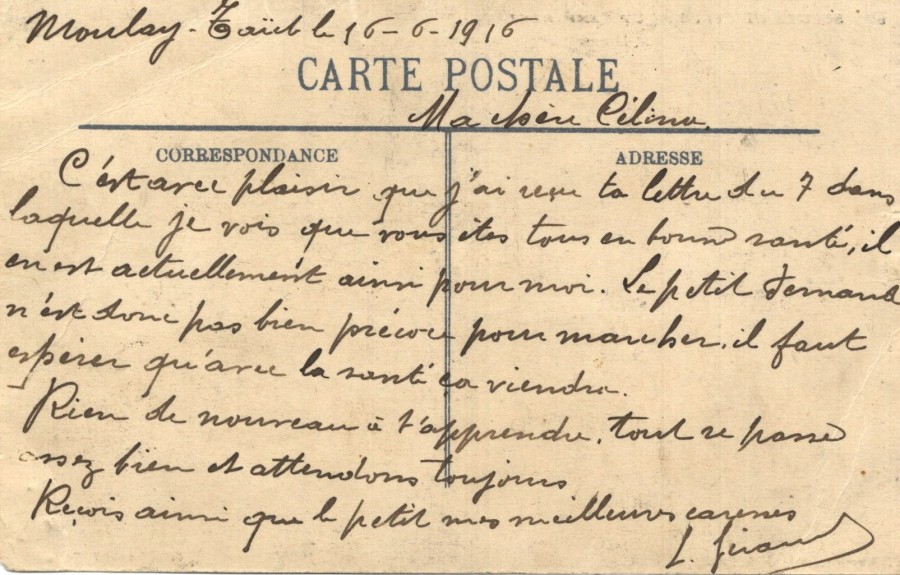 Moulay-Taïeb le 16-6-1916
CARTE POSTALE
Ma chère Célina,
CORRESPONDANCE
ADRESSE
C'est avec plaisir que j'ai reçu ta lettre du 7 dans
laquelle je vois que vous êtes tous en bonne santé, il
en est actuellement ainsi pour moi. Le petit Fernand
n'est donc pas bien précoce pour marcher, il faut
espérer qu'avec la santé ça viendra.
Rien de nouveau à t'apprendre, tout se passe
assez bien et attendons toujours
Reçois ainsi que le petit mes meilleures caresses
L. Giraud